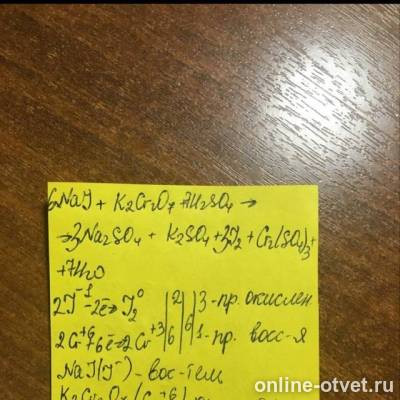 6NaJ + K2Cr2O7 + 7H2SO4 →
→ 3Na2SO4 + K2SO4 + 3J2 + Cr2(SO4)3 +
+ 7H2O
2J⁻¹ - 2ē → J2⁰ | 2 | 6 | 3 - пр. окислен.
2Cr⁺⁶ + 6ē → 2Cr⁺³ | 6 | 1 - пр. восс-я
NaJ (J⁻) - вос-тель
K2Cr2O7 (Cr⁺⁶)
online-otvet.ru